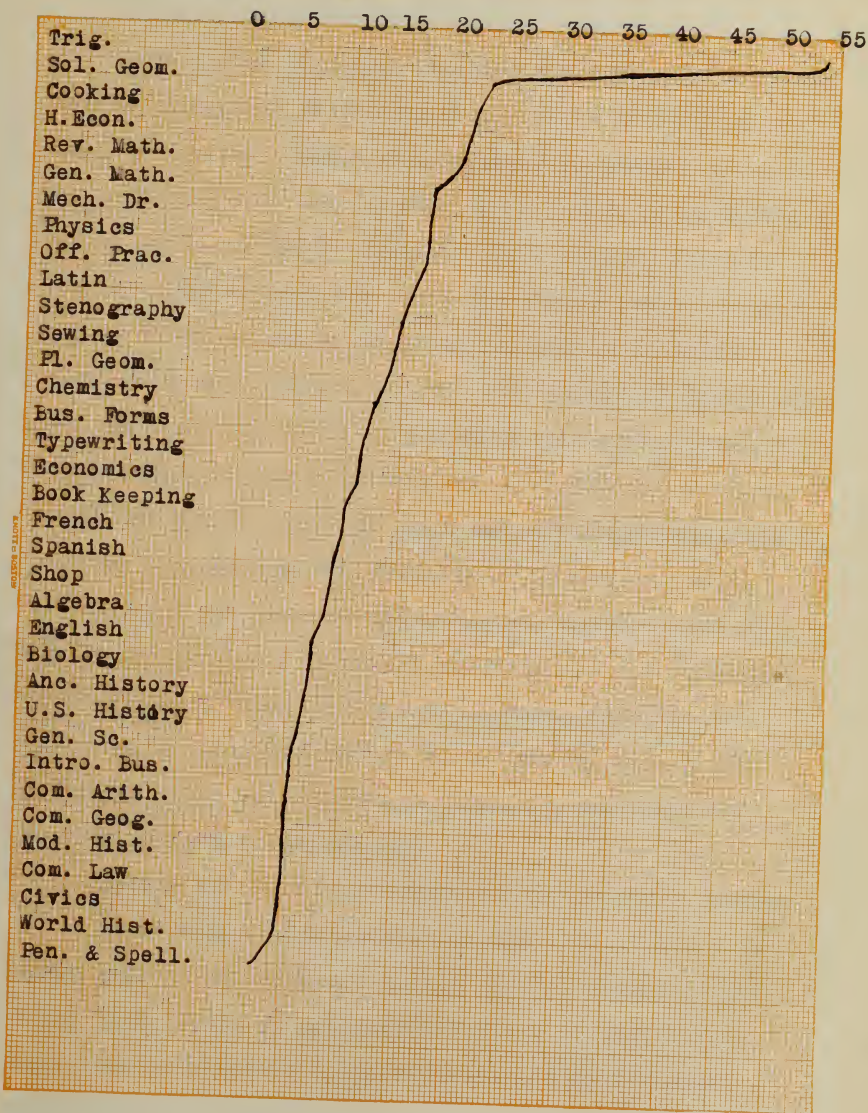 0 5 10 15 20 25 30 35 40 45 50 55
Trig.
Sol. Geom.
Cooking
H.Econ.
Rev. Math.
Gen. Math.
Mech. Dr.
Physics
Off. Prac.
Latin
Stenography
Sewing
Pl. Geom.
Chemistry
Bus. Forms
Typewriting
Economics
Book Keeping
French
Spanish
Shop
Algebra
English
Biology
Anc. History
U.S. History
Gen. Sc.
Intro. Bus.
Com. Arith.
Com. Geog.
Mod. Hist.
Com. Law
Civics
World Hist.
Pen. & Spell.